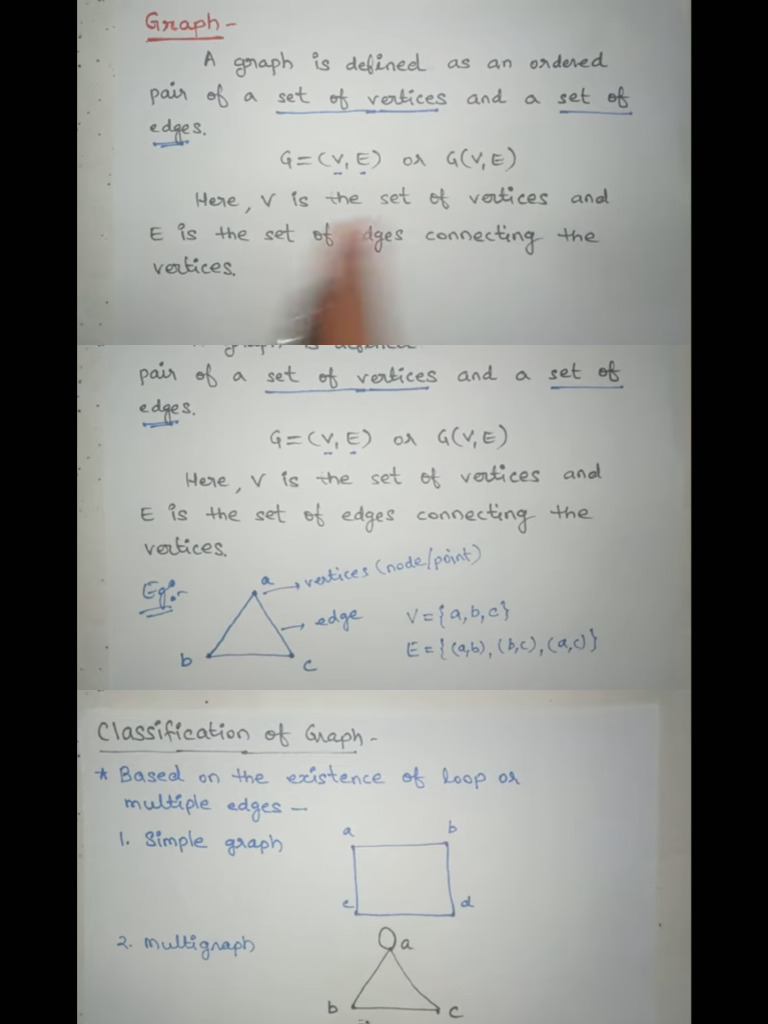 Graph -
A graph is defined as an ordered
pair of a set of vertices and a set of
edges.
G = (V, E) or G(V, E)
Here, V is the set of vertices and
E is the set of edges connecting the
vertices.
pair of a set of vertices and a set of
edges.
G = (V, E) or G(V, E)
Here, V is the set of vertices and
E is the set of edges connecting the
vertices.
Eg:-
a → vertices (node/point)
→ edge
V = {a, b, c}
b
c
E = {(a,b), (b,c), (a,c)}
Classification of Graph -
* Based on the existence of loop or
multiple edges -
1. Simple graph
a
b
c
d
2. Multigraph
a
b
c